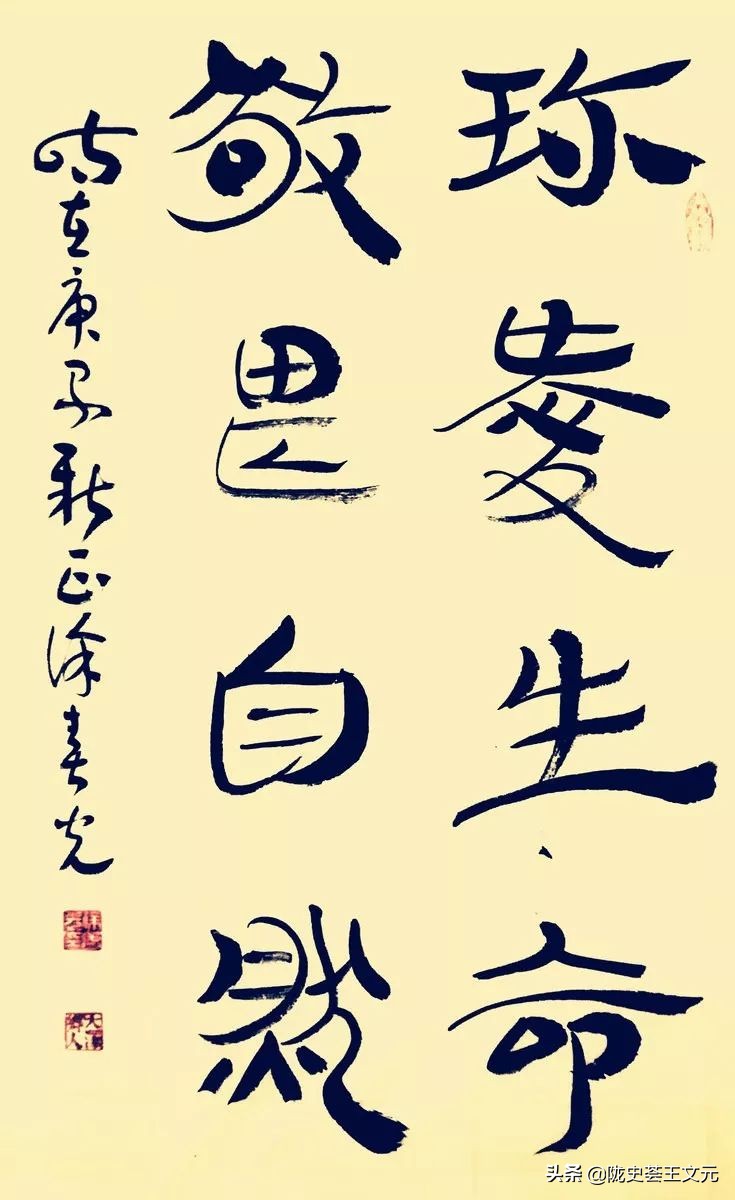 珎愛生命
敬畏自然
时在庚子新正徐春光
头条 @陇史荟王文元